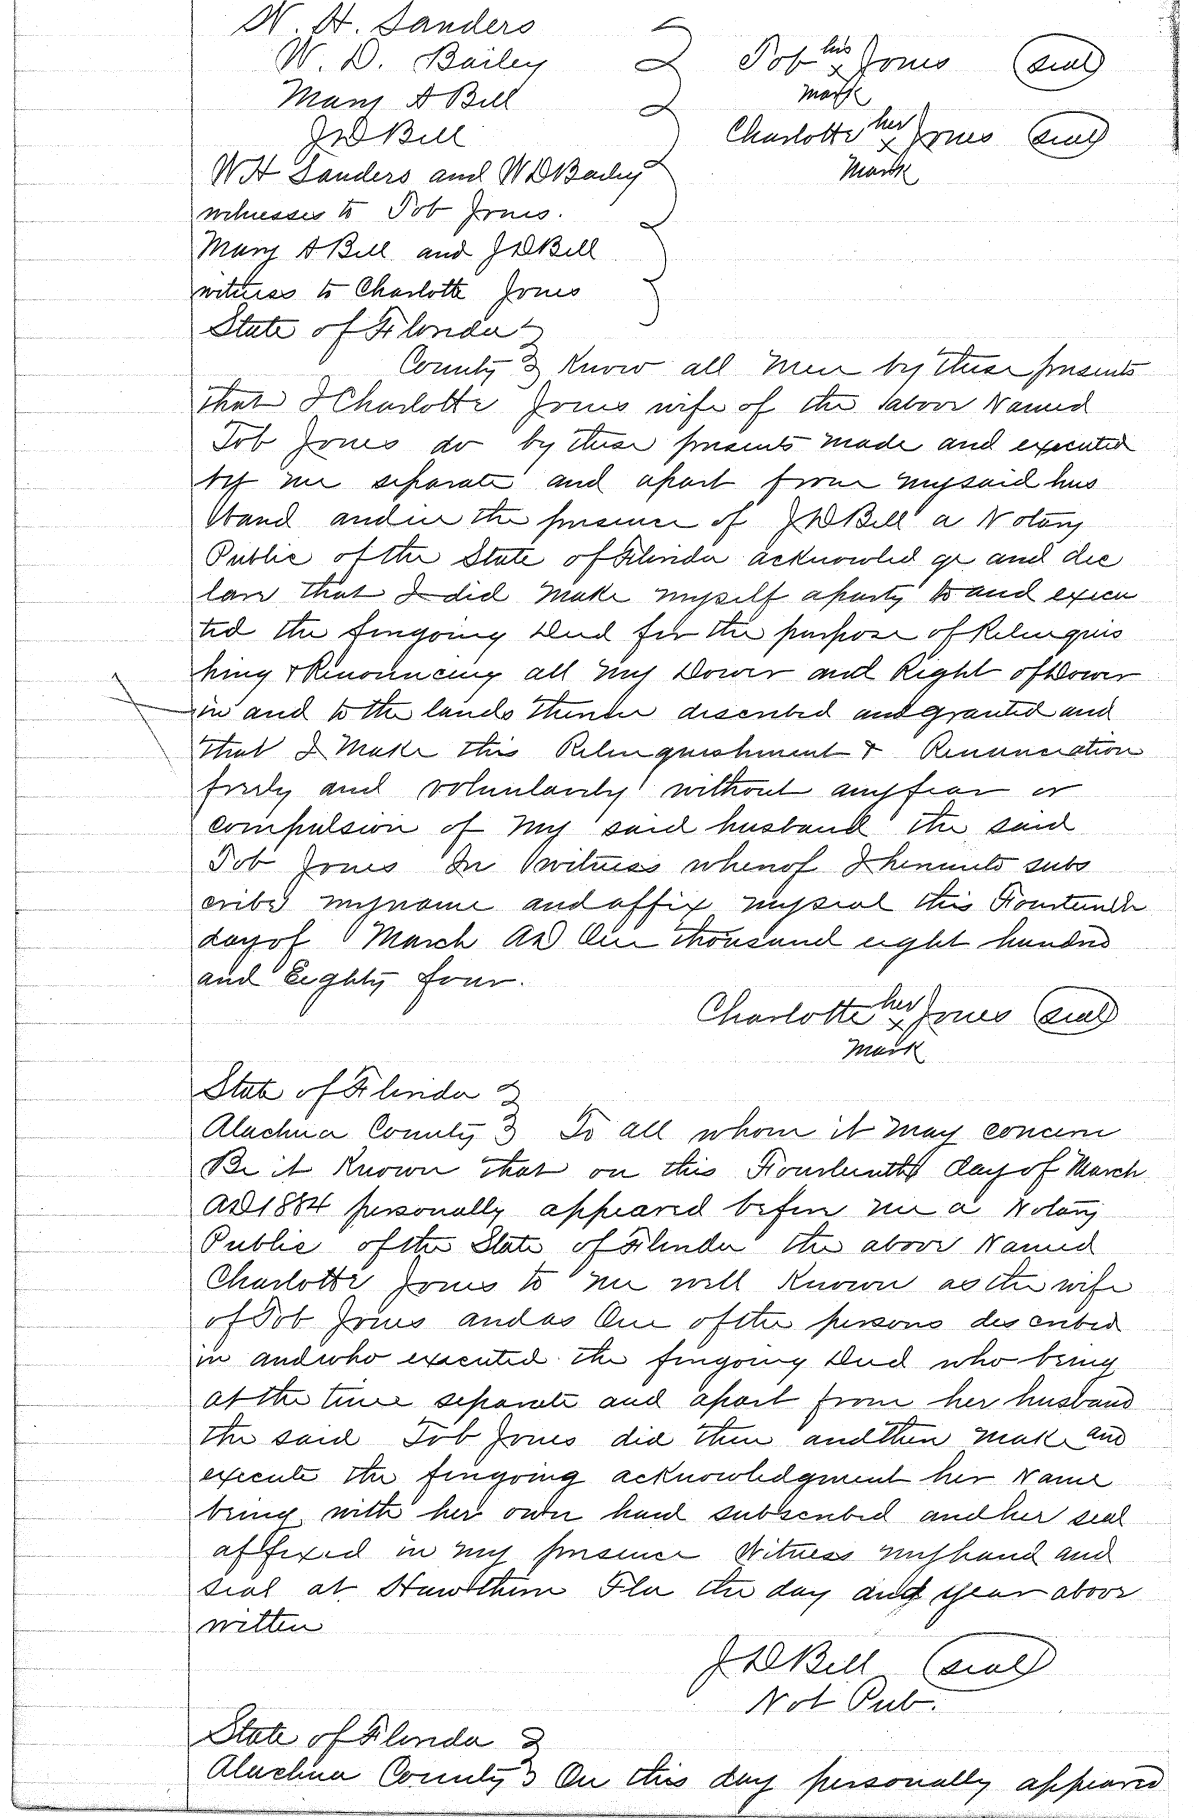 W. H. Sanders
W. D. Bailey
Mary A Bill
J D Bill
Tob his x mark Jones (seal)
Charlotte her x mark Jones (seal)
W H Sanders and W D Bailey
witnesses to Tob Jones.
Mary A Bill and J D Bill
witness to Charlotte Jones
State of Florida
County Know all Men by these presents
that I Charlotte Jones wife of the above Named
Tob Jones do by these presents made and executed
by me separate and apart from my said hus
band and in the presence of J D Bill a Notary
Public of the State of Florida acknowledge and dec
lare that I did make myself a party to and execu
ted the foregoing Deed for the purpose of Relinquis
hing & Renouncing all my Dower and Right of Dower
in and to the lands therein described and granted and
that I Make this Relinquishment & Renunciation
freely and voluntarily without any fear or
compulsion of my said husband the said
Tob Jones In witness whereof I hereunto subs
cribe my name and affix my seal this Fourteenth
day of March AD One thousand eight hundred
and Eighty four.
Charlotte her x mark Jones (seal)
State of Florida
Alachua County To all whom it may concern
Be it Known that on this Fourteenth day of March
AD 1884 personally appeared before me a Notary
Public of the State of Florida the above Named
Charlotte Jones to me well Known as the wife
of Tob Jones and as One of the persons described
in and who executed the foregoing Deed who being
at the time separate and apart from her husband
the said Tob Jones did then and then make and
execute the foregoing acknowledgment her Name
being with her own hand subscribed and her seal
affixed in my presence Witness my hand and
seal at Hawthorn Fla the day and year above
witten
J D Bill (seal)
Not Pub.
State of Florida
Alachua County On this day personally appeared